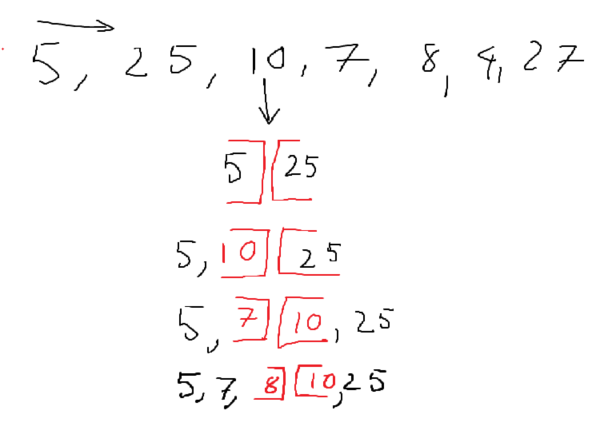 5, 25, 10, 7, 8, 4, 27
5 25
5, 10 25
5, 7 10, 25
5, 7, 8 10, 25